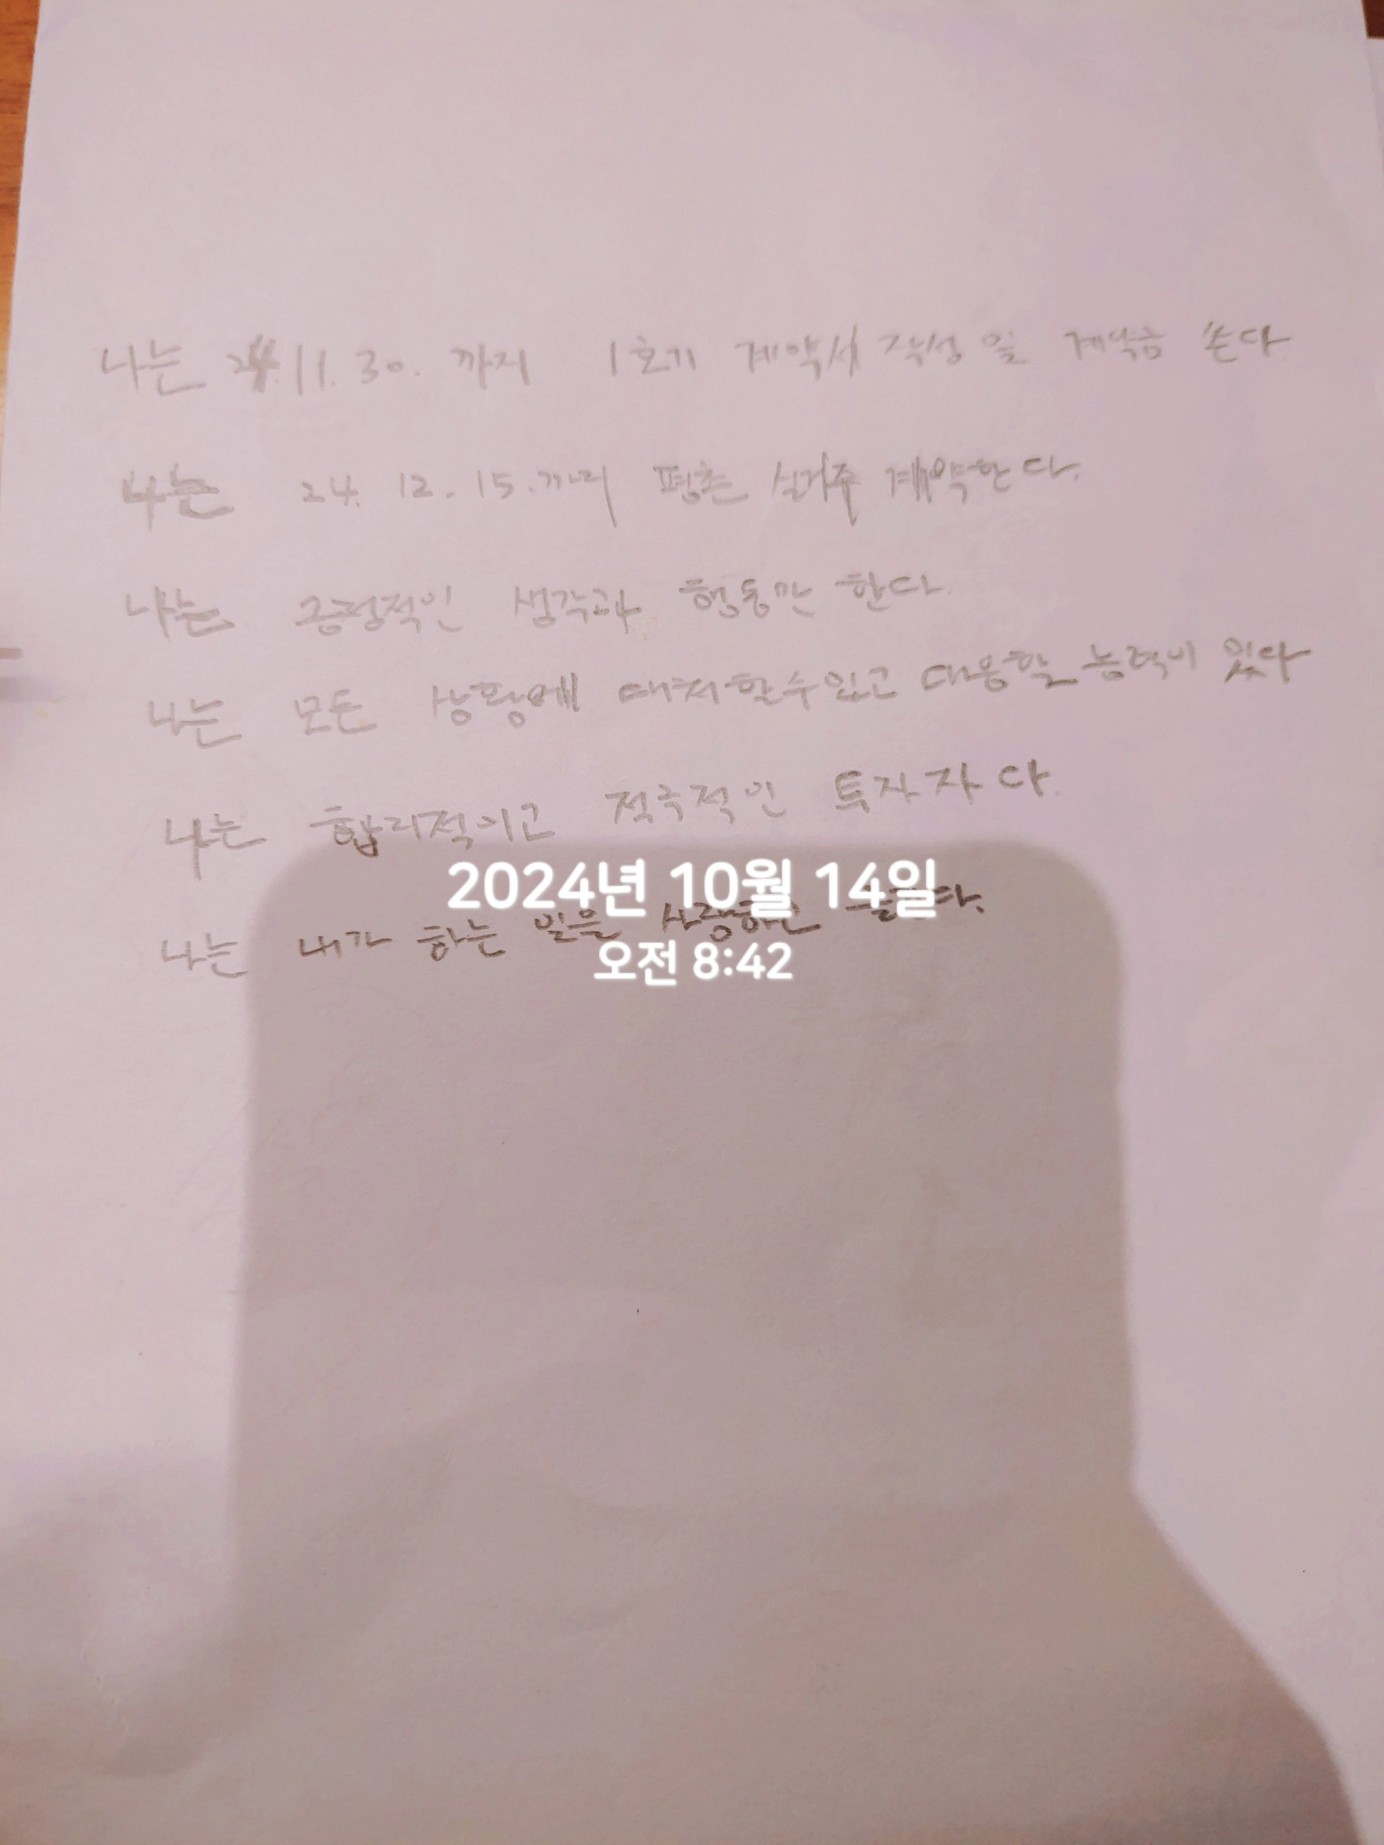 나는 24.11.30. 까지 1호기 계약서 작성 및 계약금 쏜다
나는 24. 12. 15.까지 평촌 실거주 계약한다.
나는 긍정적인 생각과 행동만 한다.
나는 모든 상황에 대처할수있고 대응할 능력이 있다
나는 합리적이고 적극적인 투자자다.
2024년 10월 14일
나는 내가 하는 일을 사랑하고
오전 8:42